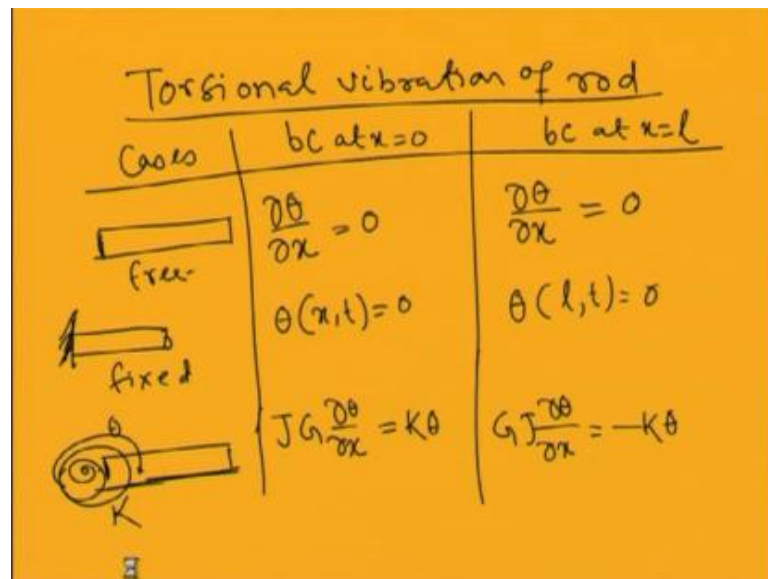 Torsional vibration of rod
Cases bc at x=0 bc at x=l
∂θ/∂x = 0 ∂θ/∂x = 0
free
θ(x,t)=0 θ(l,t)=0
fixed
θ JG ∂θ/∂x = Kθ GJ ∂θ/∂x = -Kθ
K